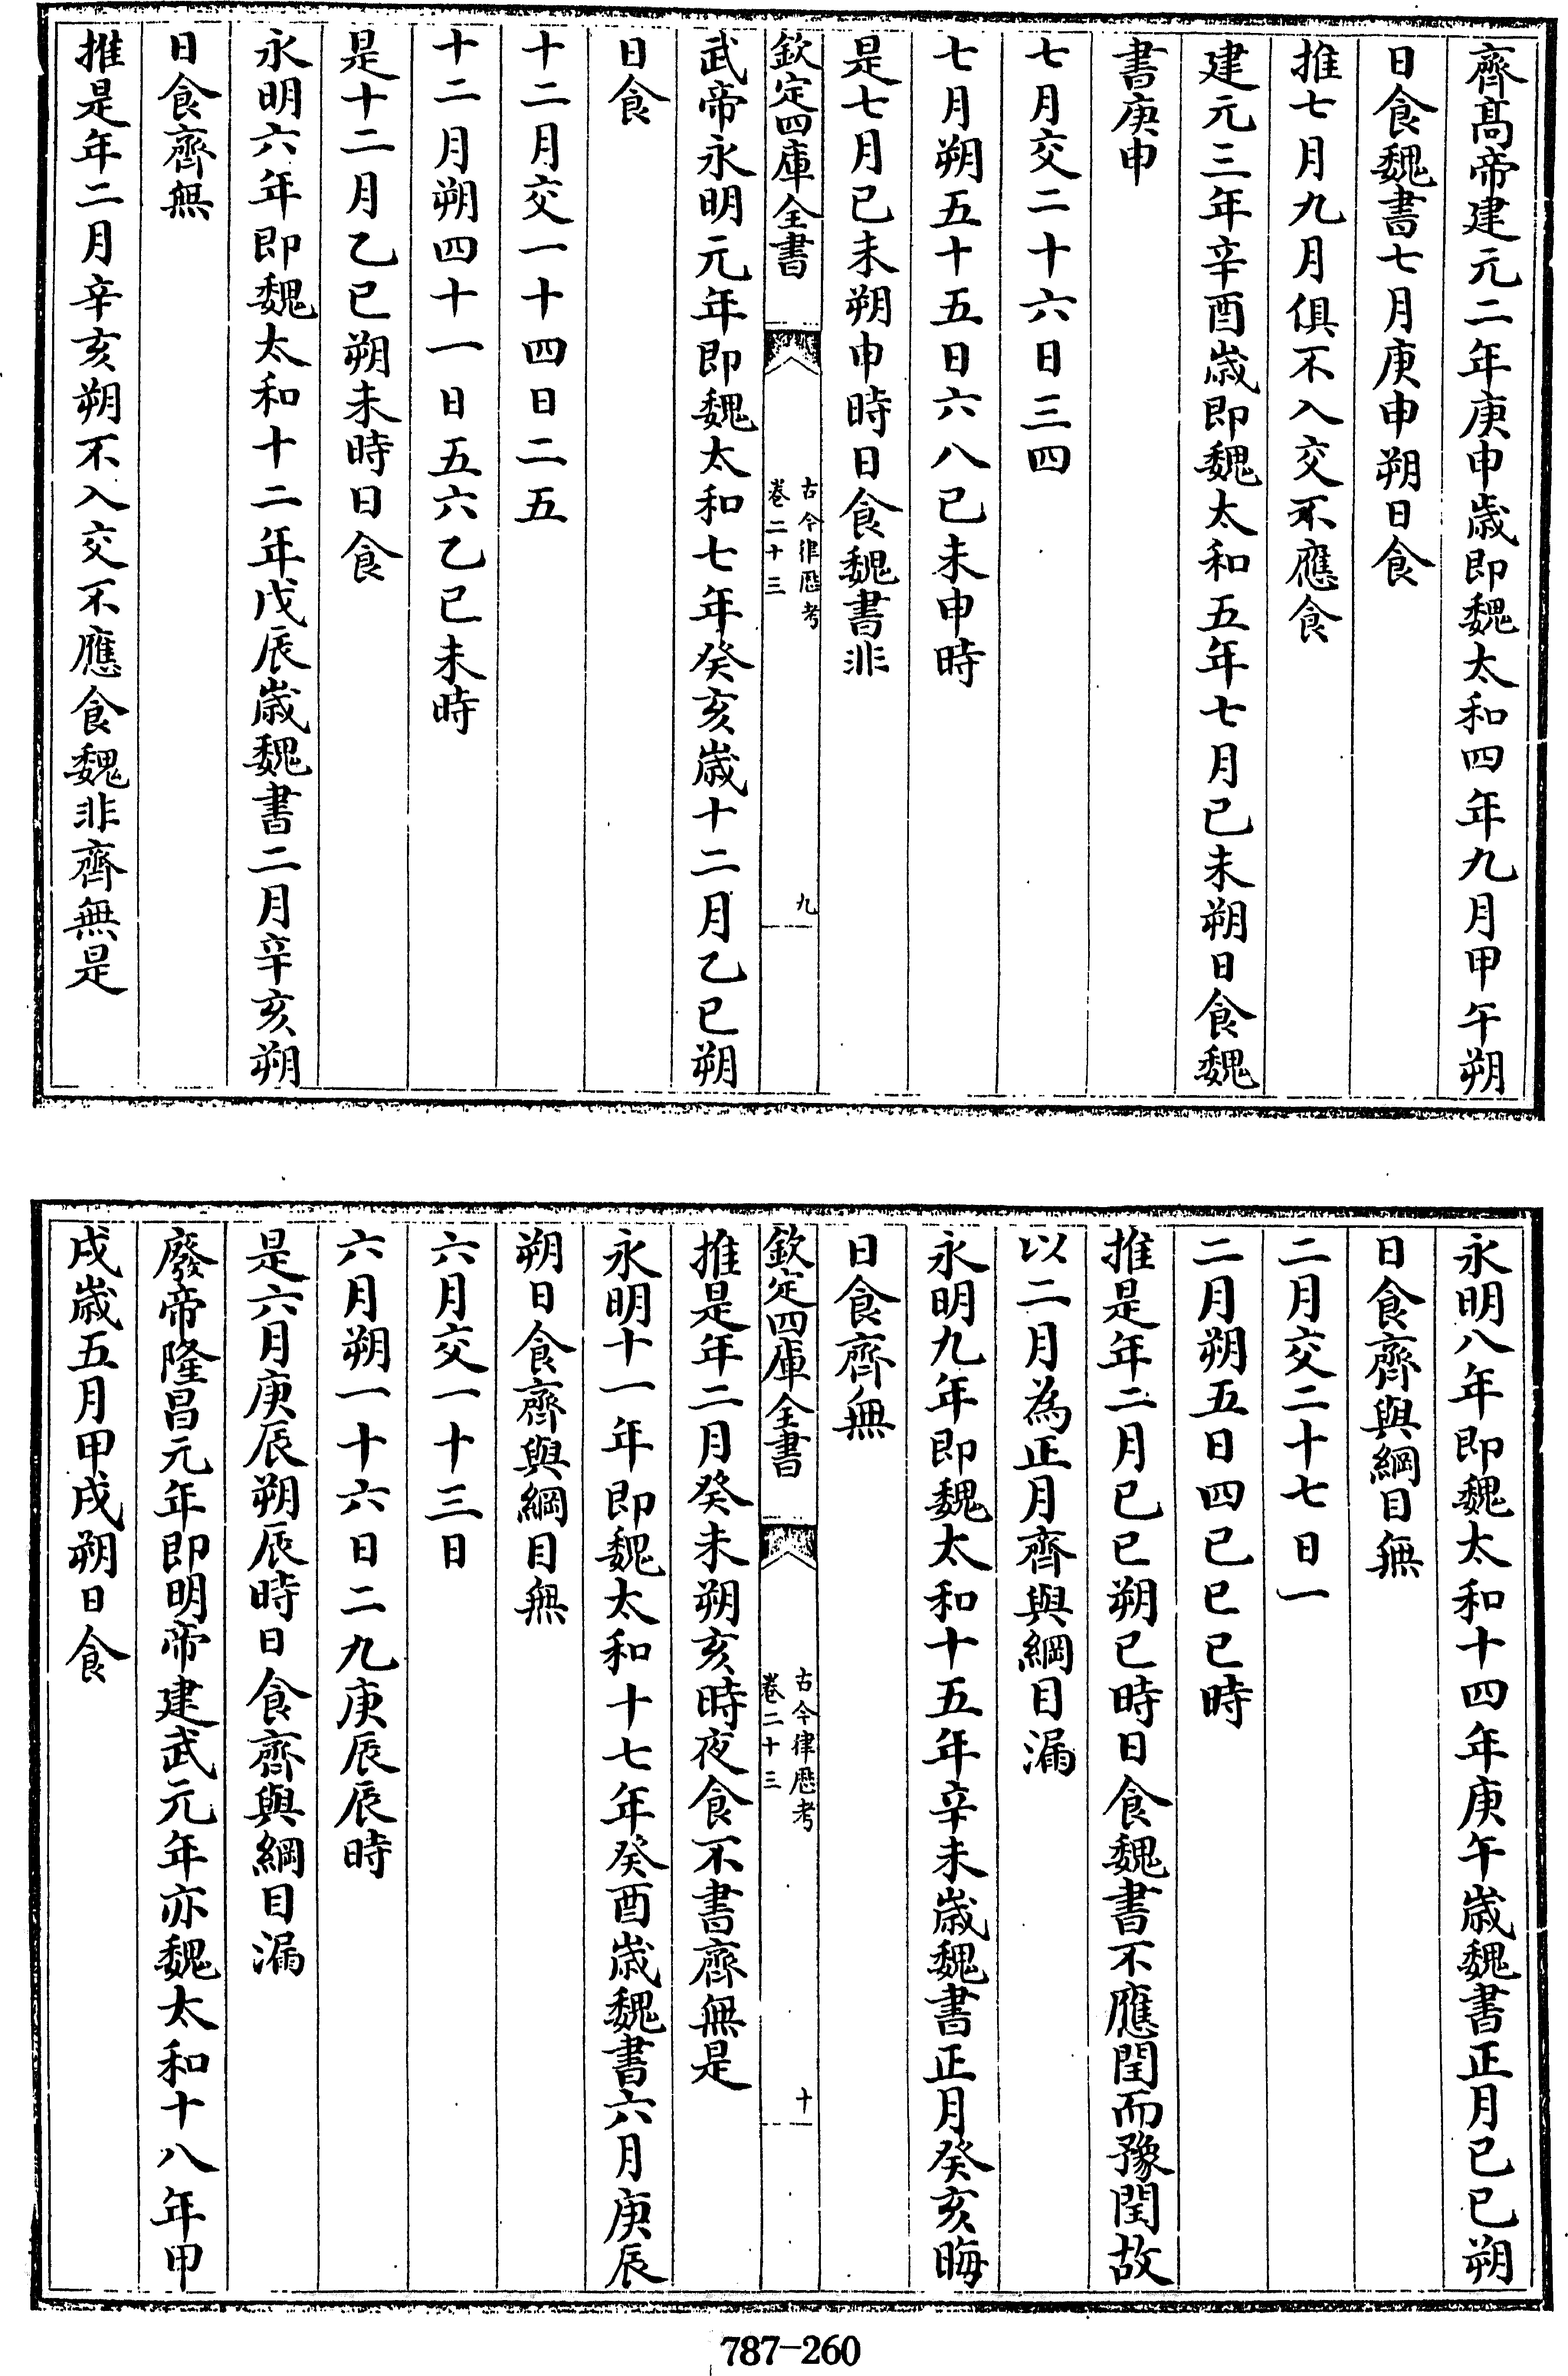 齊髙帝建元二年庚申歳即魏太和四年九月甲午朔
日食魏書七月庚申朔日食
推七月九月俱不入交不應食
建元三年辛酉歳即魏太和五年七月已未朔日食魏
書庚申
七月交二十六日三四
七月朔五十五日六八已未申時
是七月已未朔申時日食魏書非
欽定四庫全書
古今律歴考
卷二十三
九
武帝永明元年即魏太和七年癸亥歳十二月乙巳朔
日食
十二月交一十四日二五
十二月朔四十一日五六乙巳未時
是十二月乙巳朔未時日食
永明六年即魏太和十二年戊辰歳魏書二月辛亥朔
日食齊無
推是年二月辛亥朔不入交不應食魏非齊無是
永明八年即魏太和十四年庚午歳魏書正月已巳朔
日食齊與綱目無
二月交二十七日一
二月朔五日四已巳巳時
推是年二月已巳朔巳時日食魏書不應閏而豫閏故
以二月為正月齊與綱目漏
永明九年即魏太和十五年辛未歳魏書正月癸亥晦
日食齊無
欽定四庫全書
古今律歴考
卷二十三
十
推是年二月癸未朔亥時夜食不書齊無是
永明十一年即魏太和十七年癸酉歳魏書六月庚辰
朔日食齊與綱目無
六月交一十三日
六月朔一十六日二九庚辰辰時
是六月庚辰朔辰時日食齊與綱目漏
廢帝隆昌元年即明帝建武元年亦魏太和十八年甲
戌歳五月甲戌朔日食
787-260